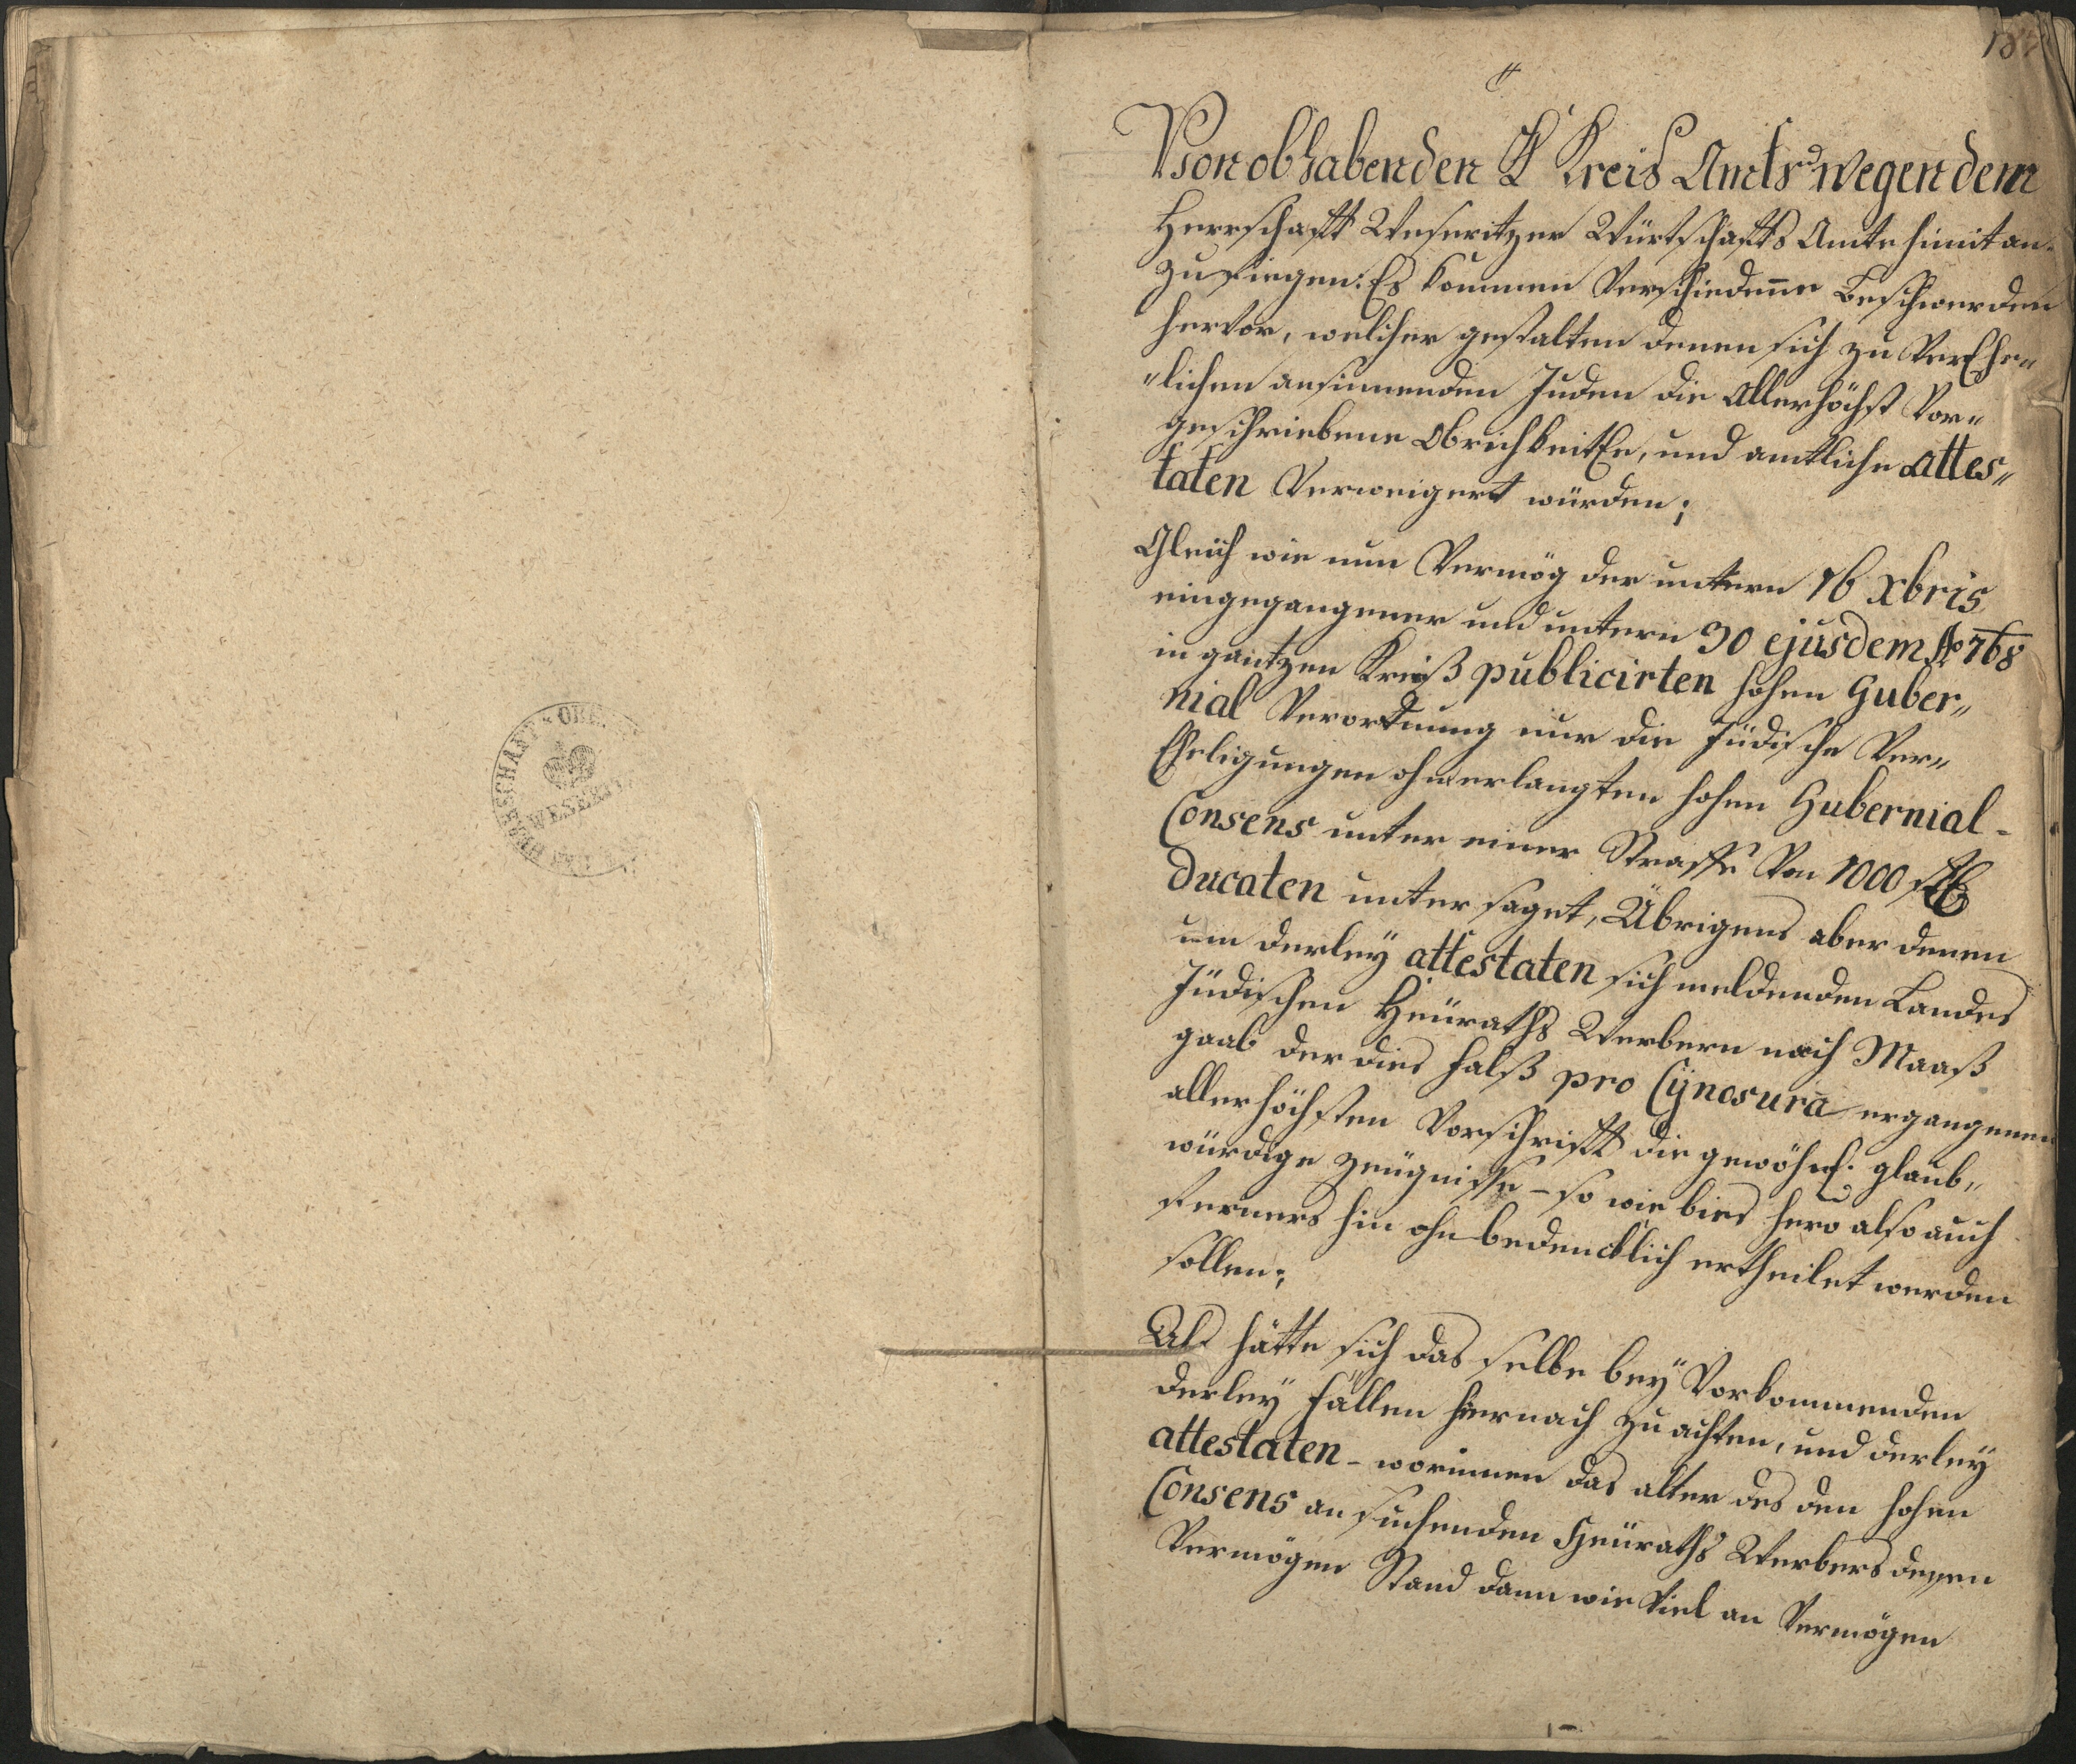 HERRSCHAFT
WESERIT
Von obhabenden K Kreis Amts wegen dem
Herrschafft Weseritzer Würtschaffts Amte himit an-
zufiegen: Es kommen Verschiedene Beschwerden
hervor, welcher gestalten denen sich zu VerEhe„
„lichen ansinnenden Juden die Allerhöchst Vor„
geschriebene Obrichkeitle, und amtliche attes„
taten Verweigert würden;
Gleich wie nun Vermög der untern 16 Xbris
eingegangener und untern 30 ejusdem Ao 768
in gantzen Kreiß publicirten hohen Guber„
nial Verordnung nur die Jüdische Ver„
Eheligungen ohnerlangten hohen Gubernial-
Consens unter einer Straffe Von 1000 st
Ducaten unter saget, Übrigens aber denen
um derley attestaten sich meldenden Landes
Jüdischen Heüraths Werbern nach Maaß
gaab der dies Falß pro Cynosura ergangenen
allerhöchsten Vorschrifft die gewöhnl. glaub„
würdige Zeügnisse - so wie bies hero also auch
ferners hin ohnbedencklich ertheilet werden
sollen;
Als hätte sich das selbe bey Vorkommenden
derley Fällen hiernach zu achten, und derley
attestaten - worinnen das alter des den hohen
Consens an suchenden Heüraths Werbers dessen
Vermögen Stand dann wie Viel an Vermögen